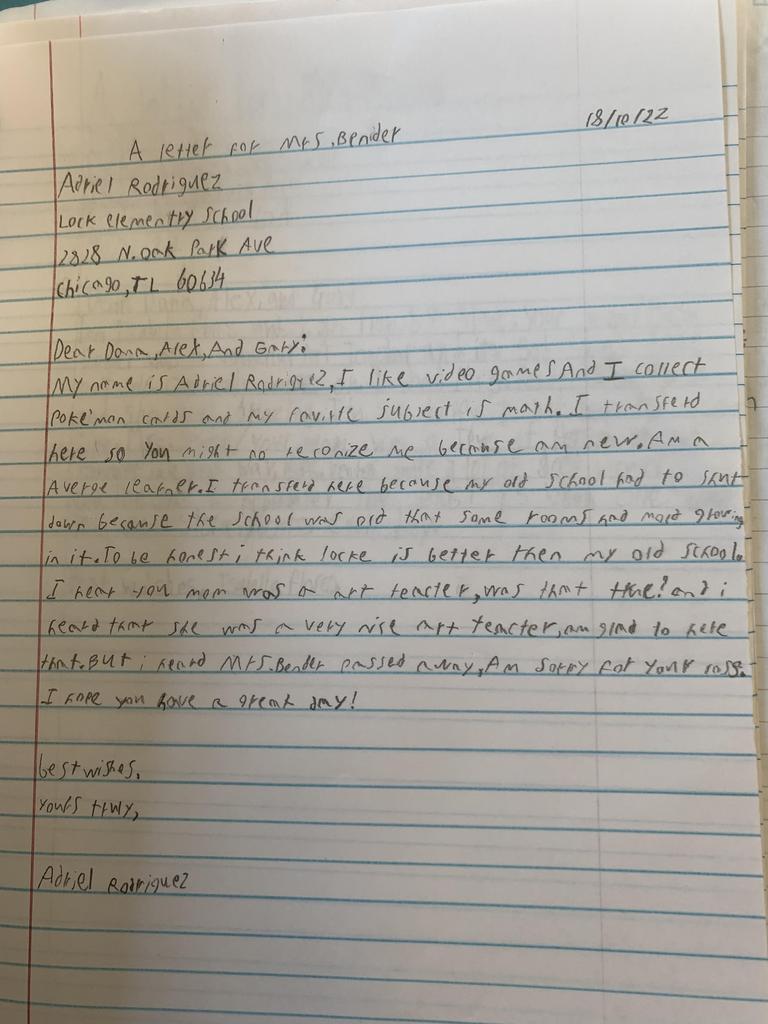 18/10/22
A letter for Mrs. Bender
Adriel Rodriguez
Lock elementry School
2828 N. Oak Park Ave
Chicago, IL 60634
Dear Dana, Alex, And Gary:
My name is Adriel Rodriguez, I like video games And I collect
Poke'mon cards and my favirte subject is math. I transferd
here so you might no reconize me because am new. Am a
Averge learner. I transferd here because my old school had to shut
down because the school was old that some rooms had mold growing
in it. To be honest i think locke is better then my old school.
I hear you mom was a art teacter, was that true? and i
heard that she was a very nise art teacter, am glad to here
that. But i heard Mrs. Bender passed away, Am sorry for your loss.
I hope you have a great day!
best wishes,
yours truly,
Adriel Rodriguez